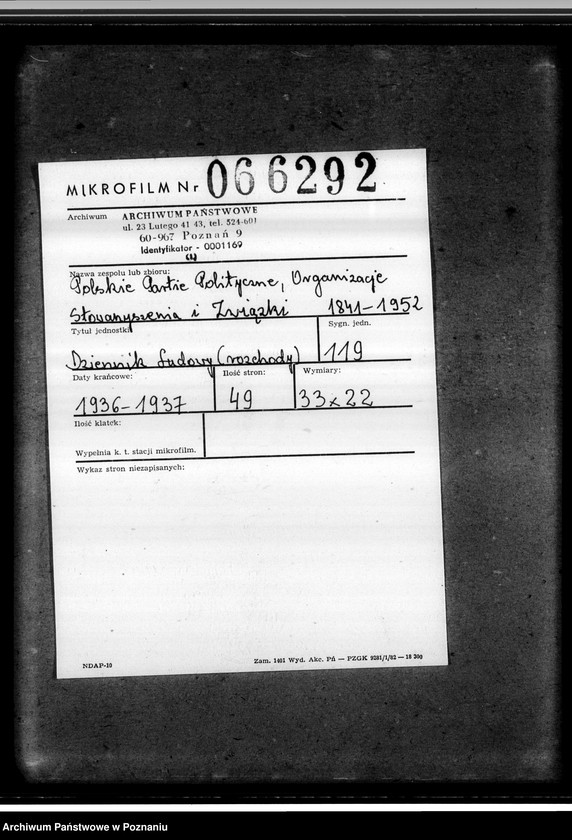 MIKROFILM Nr 066292
Archiwum ARCHIWUM PAŃSTWOWE
ul. 23 Lutego 41 43, tel. 524-601
60-967 Poznań 9
Identyfikator - 0001169
Nazwa zespołu lub zbioru:
Polskie Partie Polityczne, Organizacje
Stowarzyszenia i Związki 1841-1952
Tytuł jednostki Sygn. jedn.
Dziennik Ludowy (rozchody) 119
Daty krańcowe: Ilość stron: Wymiary:
1936-1937 49 33x22
Ilość klatek:
Wypełnia k. t. stacji mikrofilm.
Wykaz stron niezapisanych:
NDAP-10 Zam. 1401 Wyd. Akc. Pń — PZGK 9281/1/82 — 18 300
Archiwum Państwowe w Poznaniu